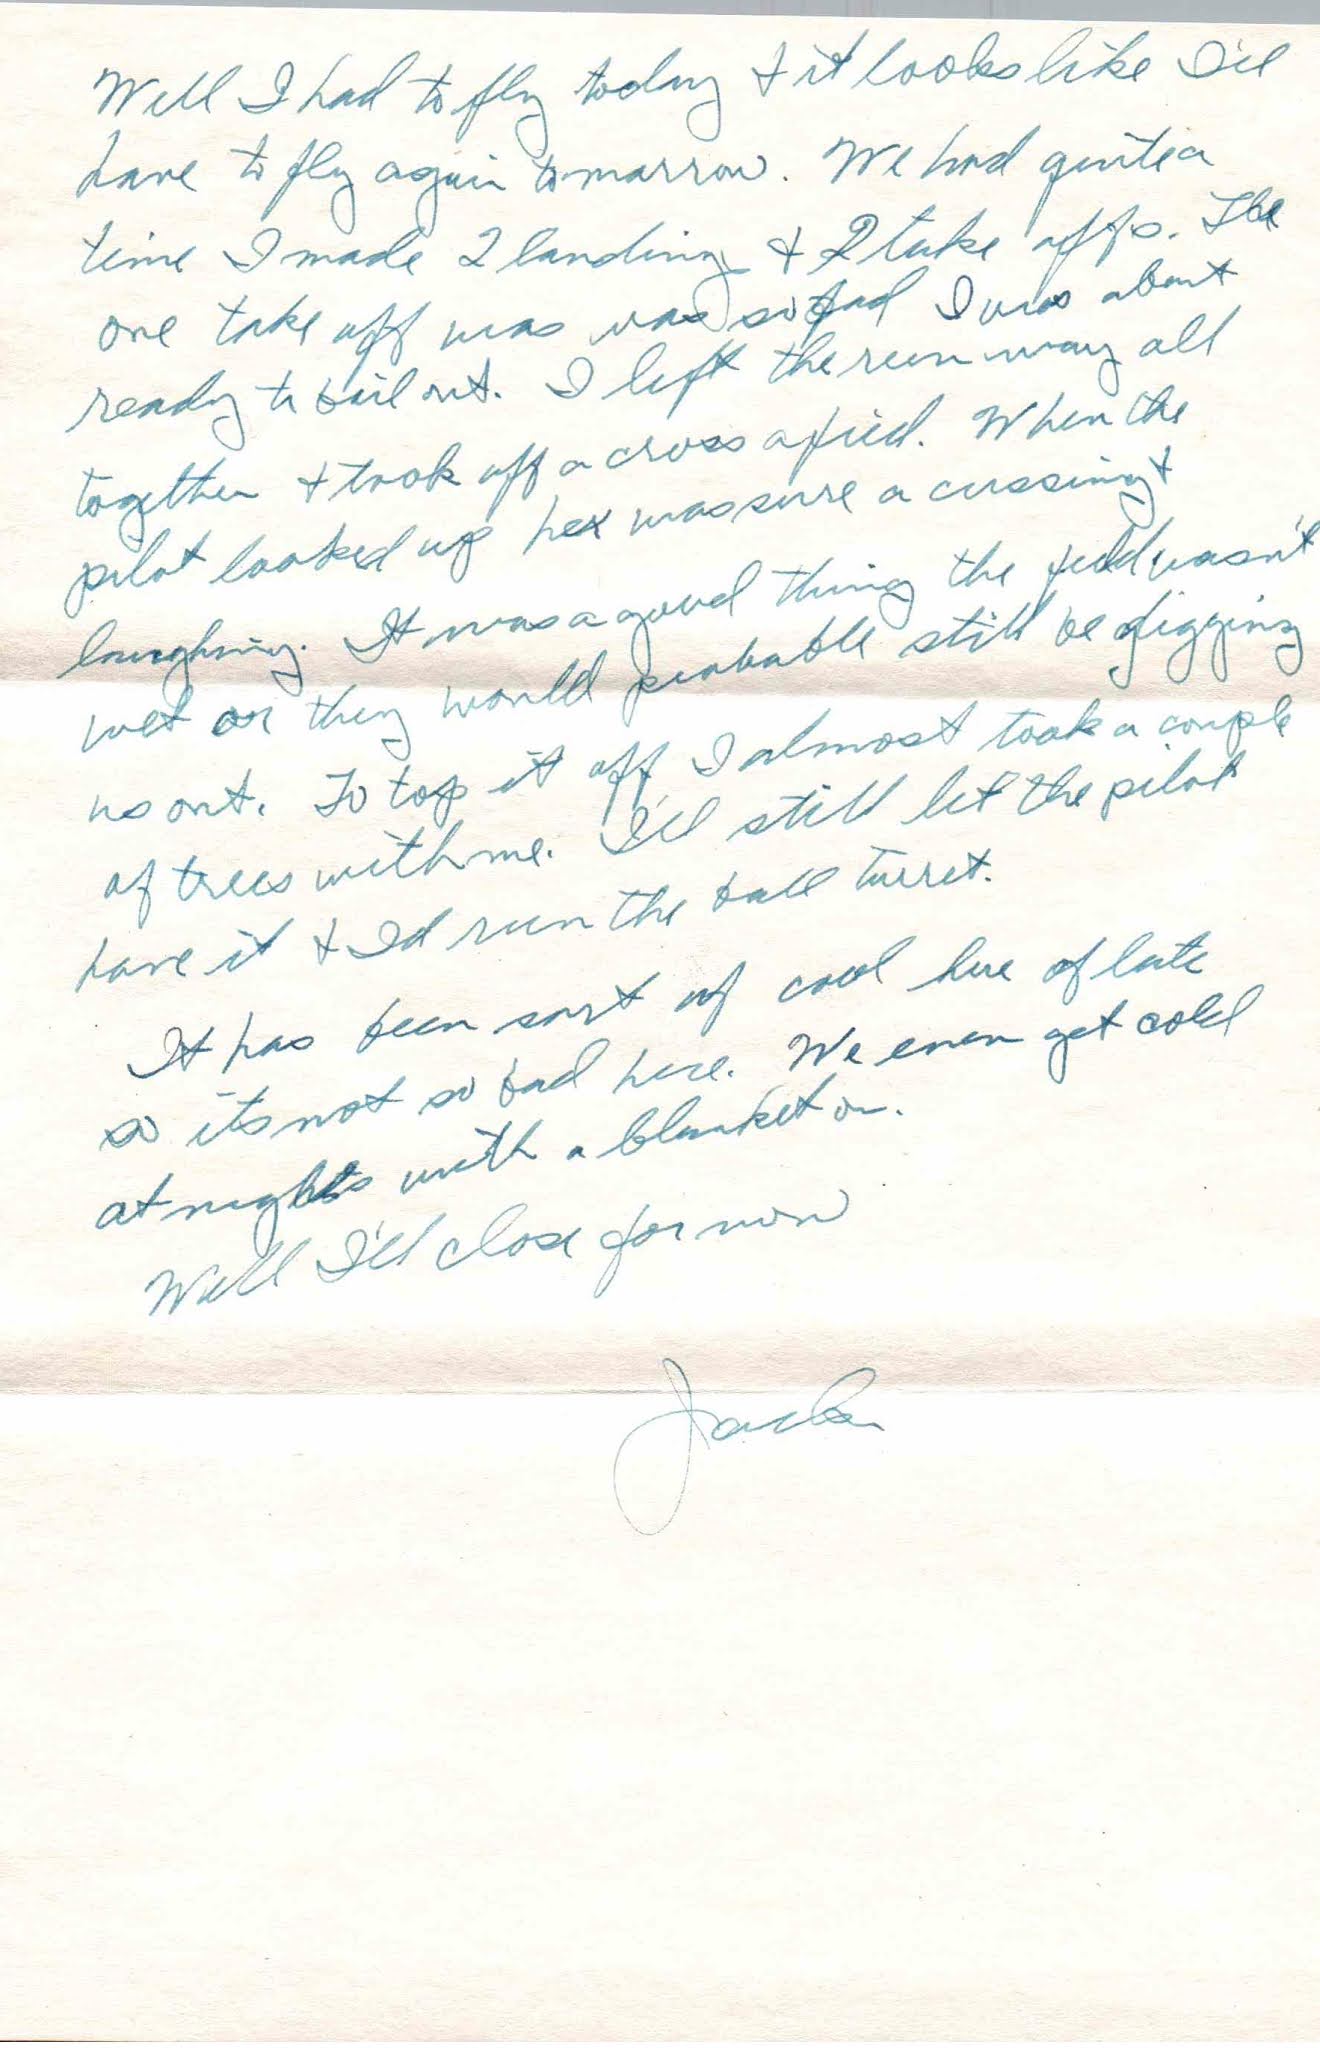 Well I had to fly today & it looks like I'll
have to fly again tomarrow. We had quite a
time I made 2 landing & 2 take offs. The
one take off was was so bad I was about
ready to bail out. I left the runway all
together & took off across a field. When the
pilot looked up he was sure a cussing &
laughing. It was a good thing the field wasn't
wet or they would probable still be digging
us out. To top it off I almost took a couple
of trees with me. I'll still let the pilot
have it & I'd run the ball turret.
It has been sort of cool here of late
so its not so bad here. We even get cold
at nights with a blanket on.
Well I'll close for now
Jack